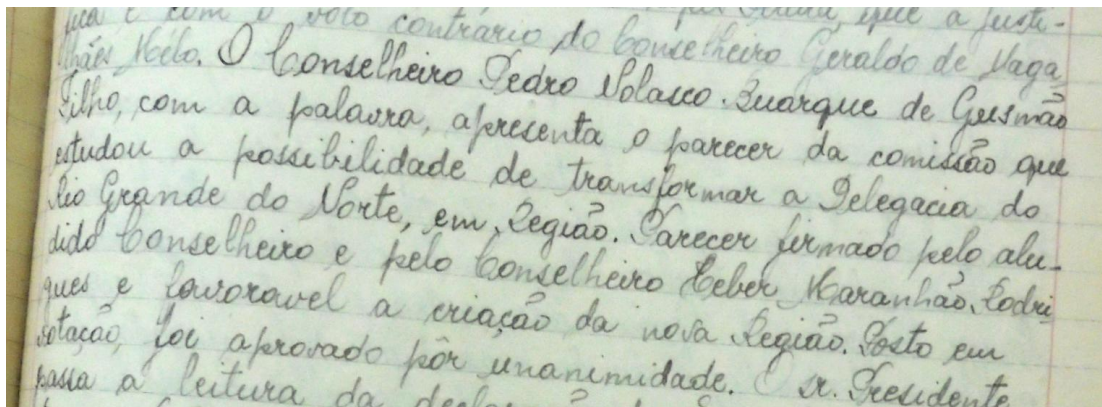 fica e com o voto contrário do Conselheiro Geraldo de Maga
lhães Melo. O Conselheiro Pedro Nolasco Buarque de Gusmão
Filho, com a palavra, apresenta o parecer da comissão que
estudou a possibilidade de transformar a Delegacia do
Rio Grande do Norte, em Região. Parecer firmado pelo alu-
dido Conselheiro e pelo Conselheiro Heber Maranhão Rodri
gues e favoravel a criação da nova Região. Pôsto em
votação, foi aprovado pôr unanimidade. O sr. Presidente
passa a leitura da